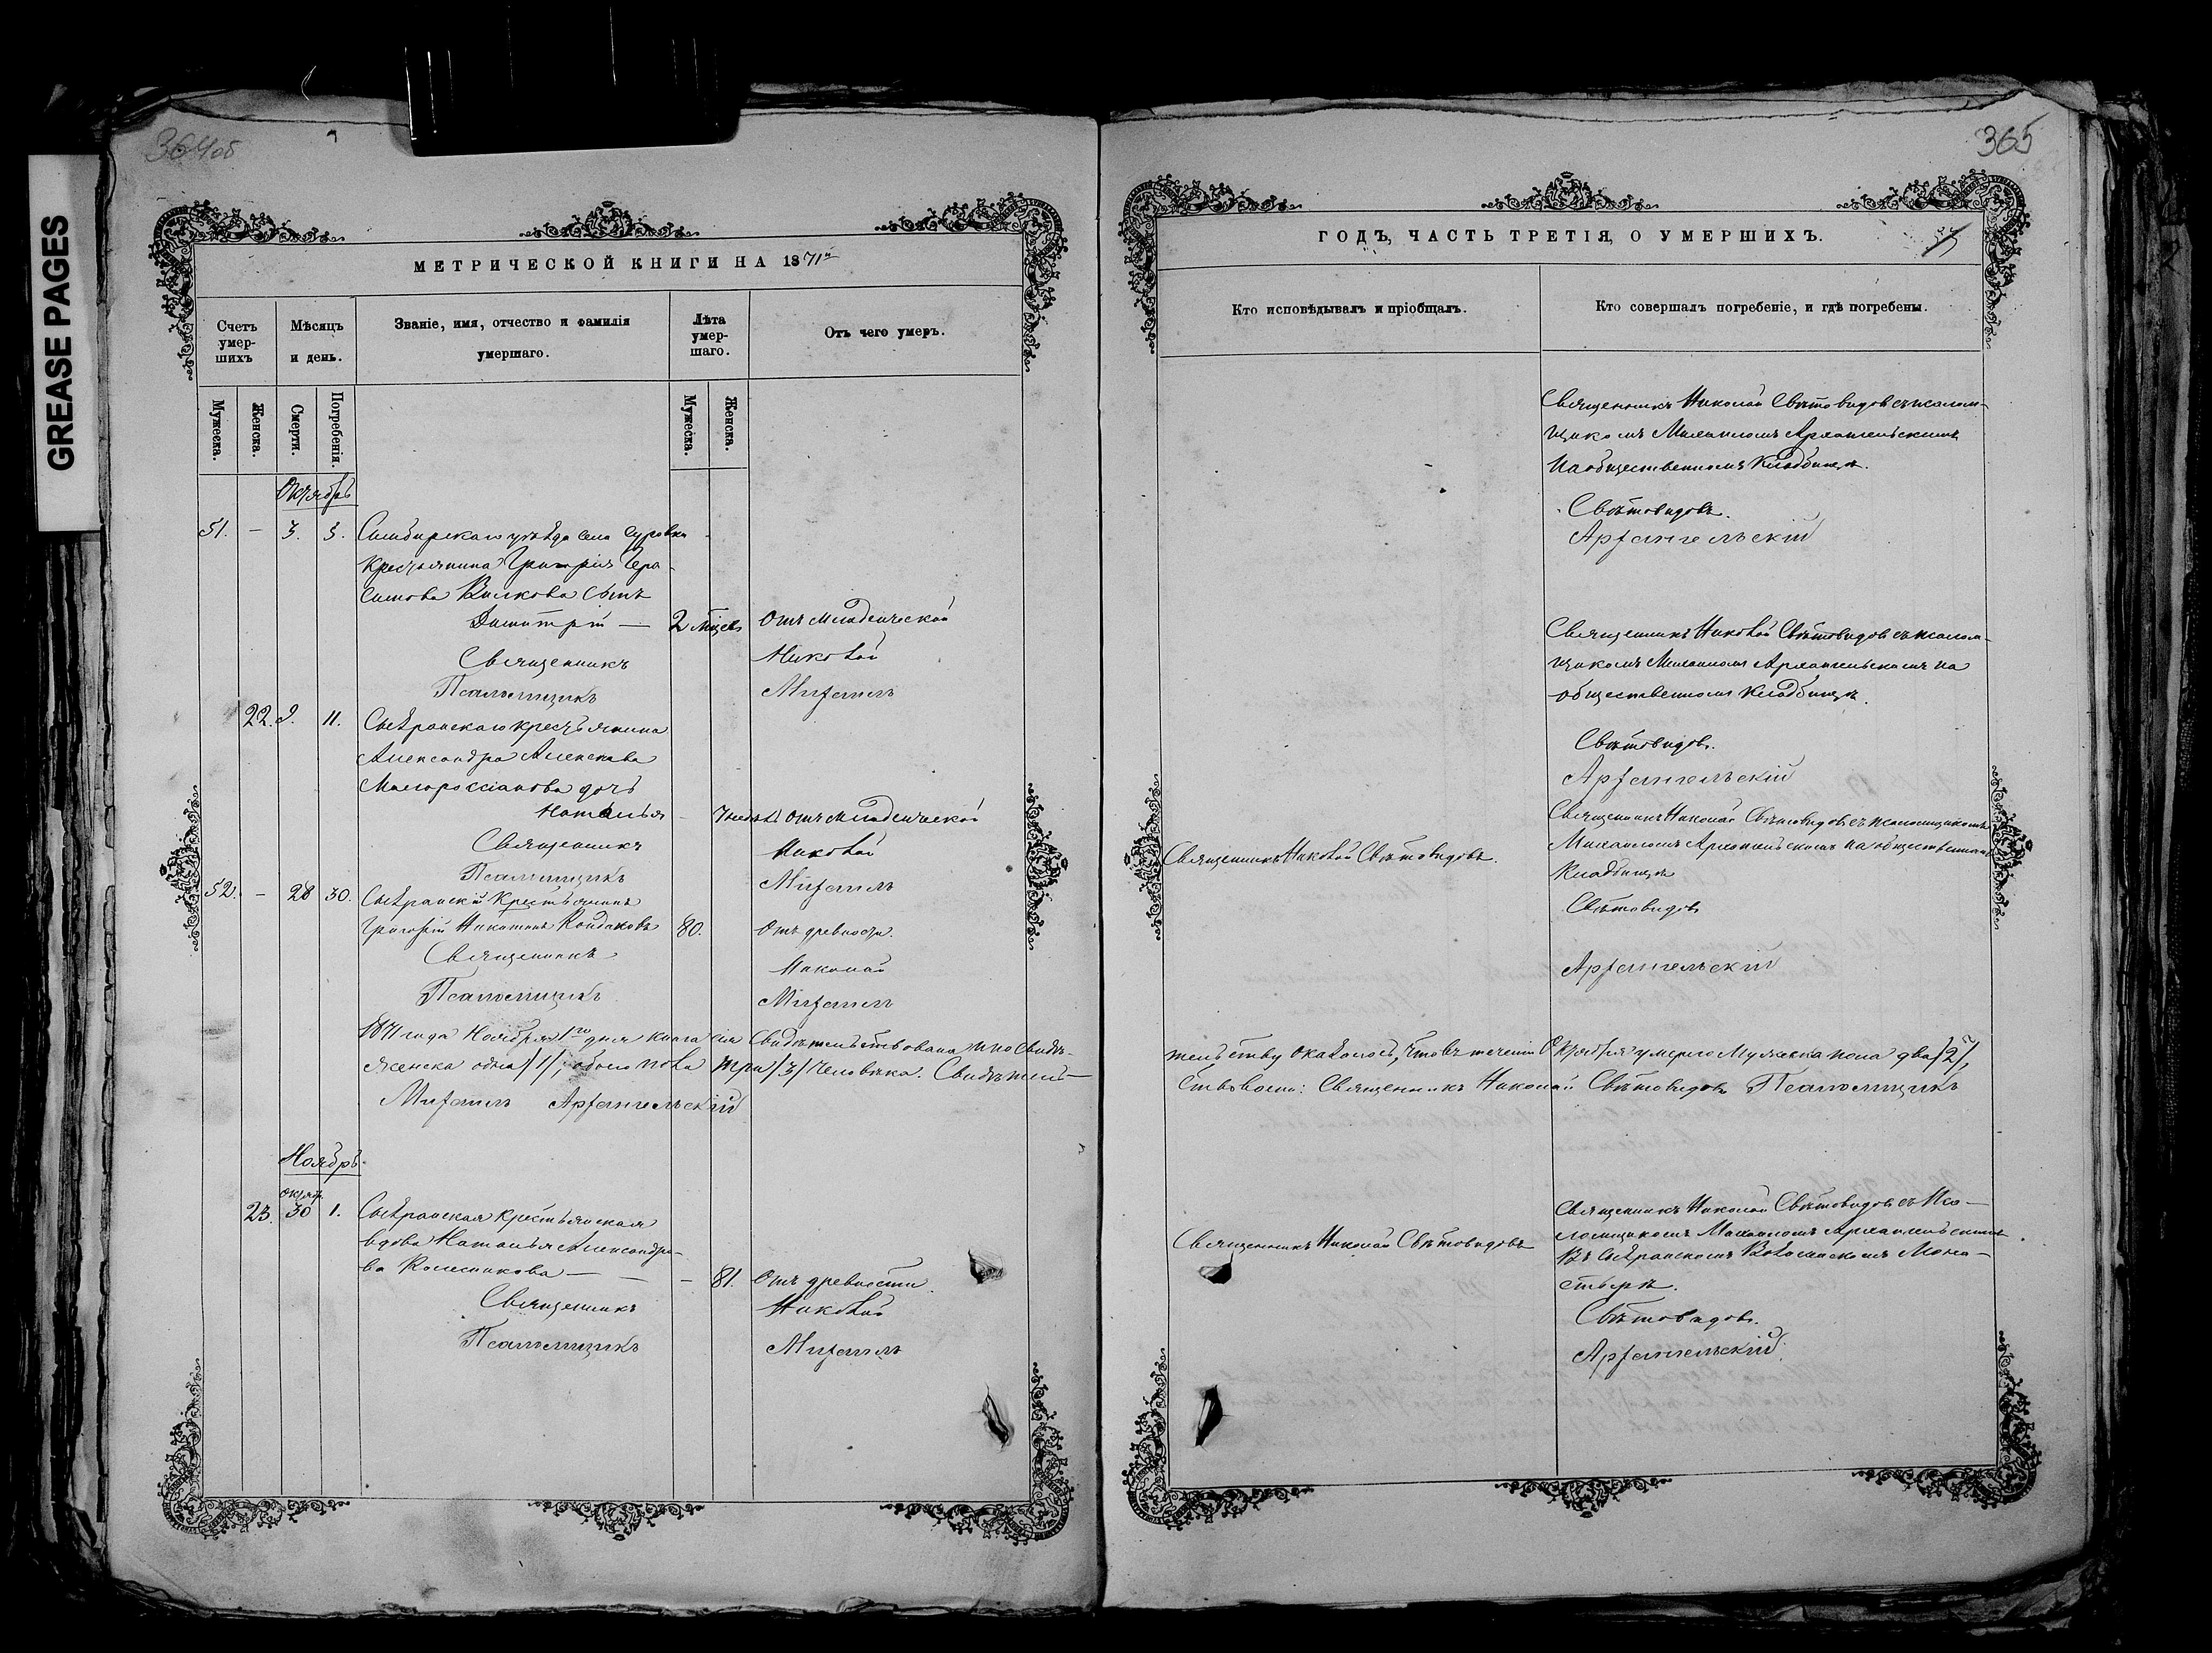 GREASE PAGES
364об
МЕТРИЧЕСКОЙ КНИГИ НА 1871й
Счетъ умер-шихъ
Мѣсяцъ и день.
Званіе, имя, отчество и фамилія умершаго.
Лѣта умер-шаго.
Отъ чего умеръ.
Мужеска.
Женска.
Смерти.
Погребенія.
Мужеска.
Женска.
Октябрь
51. — 3. 5. Симбирскаго уѣзда села Суровки
крестьянина Григорія Гера-
симова Волкова сынъ
Димитрій — 2 мѣсяц. Отъ младенческой
Священникъ Николай
Псаломщикъ Михаилъ
22. 9. 11. Сызранскаго крестьянина
Александра Алексѣева
Малороссіянова дочь
Наталья — 7 недѣль Отъ младенческой
Священникъ Николай
Псаломщикъ Михаилъ
52. — 28 30. Сызранскій крестьянинъ
Григорій Никитинъ Кондаковъ 80. Отъ древности.
Священникъ Николай
Псаломщикъ Михаилъ
1871 года Ноября 1го дня книга сія свидѣтельствована и по свидѣ-
женска одна /1/, обоего пола три /3/ человѣка. Свидѣтель-
Михаилъ Архангельскій
Ноябрь.
октяб.
23. 30 1. Сызранская крестьянская
вдова Наталья Александро-
ва Колесникова — — — 81. Отъ древности.
Священникъ Николай
Псаломщикъ Михаилъ
365
ГОДЪ, ЧАСТЬ ТРЕТІЯ, О УМЕРШИХЪ.
Кто исповѣдывалъ и пріобщалъ.
Кто совершалъ погребеніе, и гдѣ погребены.
Священникъ Николай Свѣтовидовъ съ псалом-
щикомъ Михаиломъ Архангельскимъ
на общественномъ кладбищѣ.
Свѣтовидовъ.
Архангельскій
Священникъ Николай Свѣтовидовъ съ псалом-
щикомъ Михаиломъ Архангельскимъ на
общественномъ кладбищѣ.
Свѣтовидовъ.
Архангельскій
Священникъ Николай Свѣтовидовъ съ псаломщикомъ
Священникъ Николай Свѣтовидовъ. Михаиломъ Архангельскимъ на общественномъ
кладбищѣ
Свѣтовидовъ
Архангельскій
тельству оказалось, что въ теченіи Октября умерло мужеска пола два /2/,
ствовали: Священникъ Николай Свѣтовидовъ Псаломщикъ
Священникъ Николай Свѣтовидовъ съ Пса-
Священникъ Николай Свѣтовидовъ ломщикомъ Михаиломъ Архангельскимъ
въ Сызранскомъ Вознесенскомъ Мона-
стырѣ.
Свѣтовидовъ.
Архангельскій